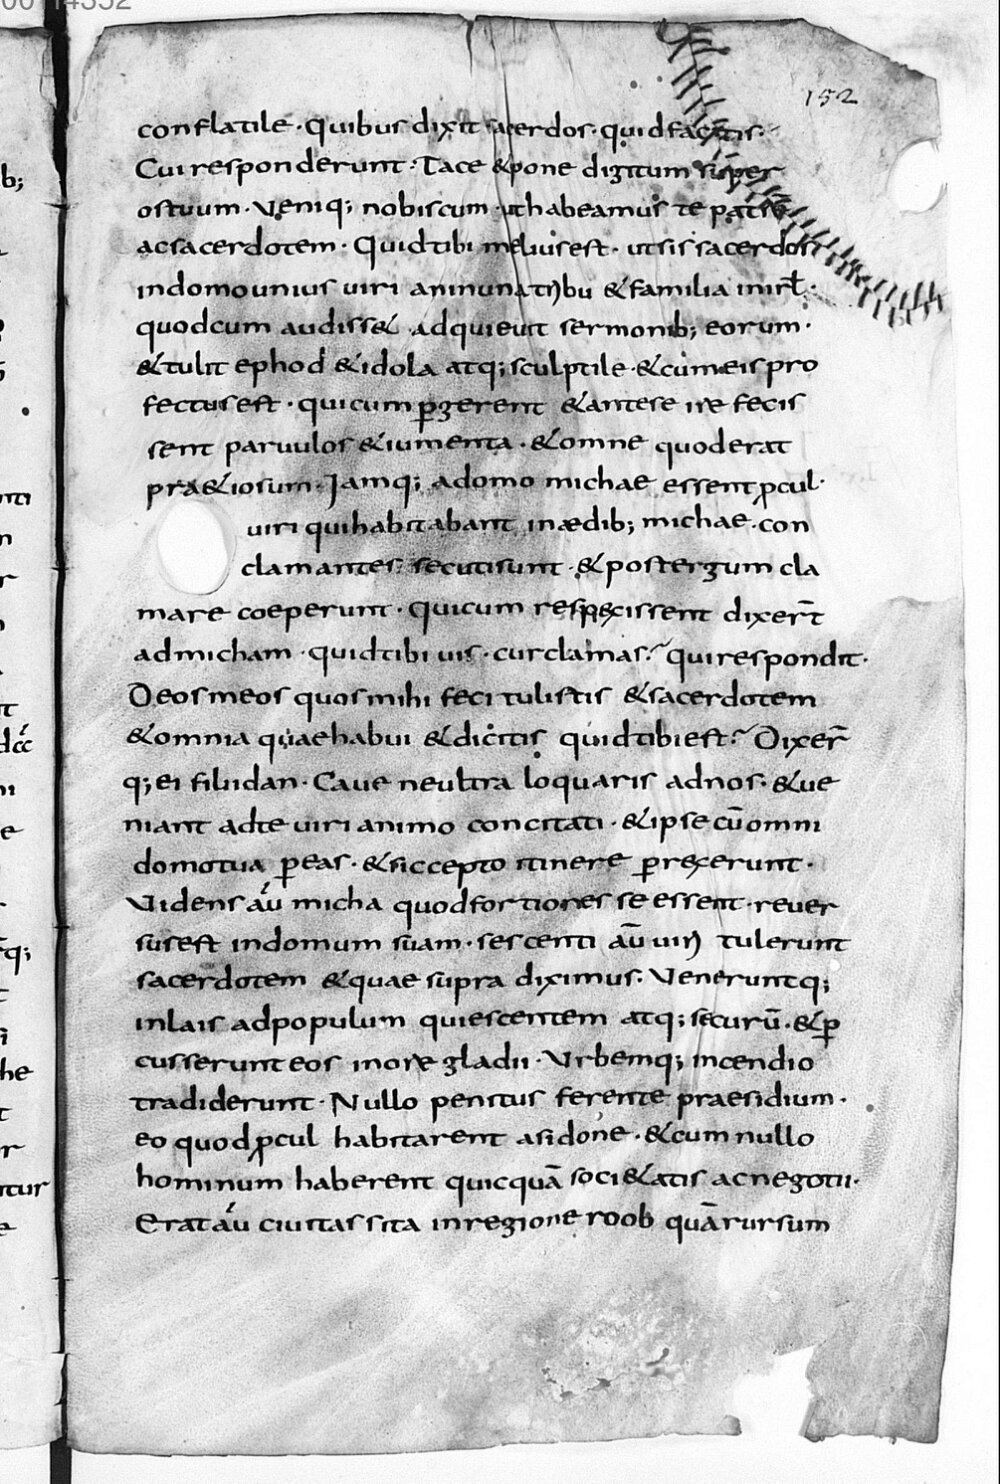 152
conflatile · quibus dixit sacerdos · quid facitis ·
Cui responderunt · Tace & pone digitum super
os tuum · Veniq; nobiscum · ut habeamus te patrē
ac sacerdotem · Quid tibi melius est · ut sis sacerdos
in domo unius uiri an in una tribu & familia in irl̄ ·
quod cum audiss& adquieuit sermonib; eorum ·
& tulit ephod & idola atq; sculptile · & cum eis pro
fectus est · qui cum ꝑgerent & ante se ire fecis
sent paruulos & iumenta · & omne quod erat
prae&iosum · Jamq; a domo michae essent ꝓcul ·
uiri qui habitabant in ædib; michae · con
clamantes secuti sunt · & post ergum cla
mare coeperunt · qui cum respexissent dixer̄t
ad micham · quid tibi uis · cur clamas? qui respondit ·
Deos meos quos mihi feci tulistis & sacerdotem
& omnia quae habui & dicitis quid tibi est? Dixer̄
q; ei filii dan · Caue ne ultra loquaris ad nos · & ue
niant ad te uiri animo concitati · & ipse cū omni
domo tua ꝑeas · & sic cepto itinere ꝑrexerunt ·
Videns aū micha quod fortiores se essent · reuer
sus est in domum suam · sescenti aū uiri tulerunt
sacerdotem & quae supra diximus · Veneruntq;
in lais ad populum quiescentem atq; securū · & ꝑ
cusserunt eos in ore gladii · Vrbemq; incendio
tradiderunt · Nullo penitus ferente praesidium ·
eo quod ꝓcul habitarent a sidone · & cum nullo
hominum haberent quicquā soci&atis ac negotii ·
Erat aū ciuitas sita in regione roob quā rursum